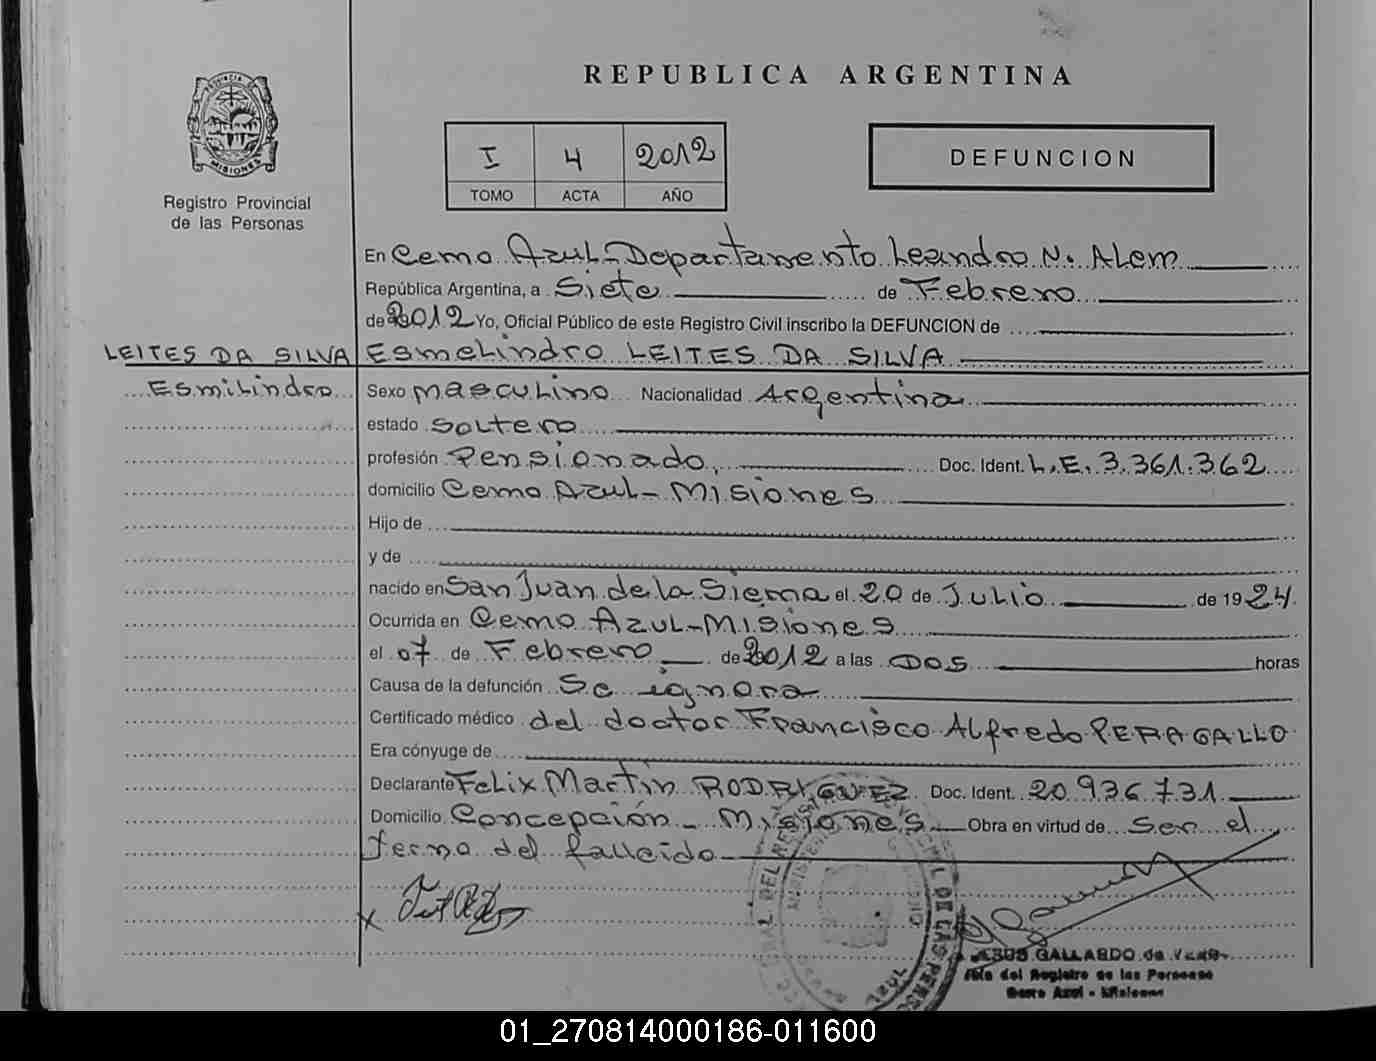 REPUBLICA ARGENTINA
PROVINCIA
MISIONES
Registro Provincial
de las Personas
I 4 2012
TOMO ACTA AÑO
DEFUNCION
En Cerro Azul - Departamento Leandro N. Alem
República Argentina, a Siete de Febrero
de 2012 Yo, Oficial Público de este Registro Civil inscribo la DEFUNCION de
LEITES DA SILVA Esmelindro LEITES DA SILVA
Esmilindro Sexo masculino Nacionalidad Argentina
estado Soltero
profesión Pensionado, Doc. Ident. L.E. 3.361.362
domicilio Cerro Azul - Misiones
Hijo de
y de
nacido en San Juan de la Sierra el 20 de Julio de 1924.
Ocurrida en Cerro Azul - Misiones
el 07 de Febrero de 2012 a las Dos horas
Causa de la defunción Se ignora
Certificado médico del doctor Francisco Alfredo PERAGALLO
Era cónyuge de
Declarante Felix Martin RODRIGUEZ Doc. Ident. 20.936.731
Domicilio Concepción - Misiones Obra en virtud de Ser el
Yerno del fallecido
X
JESUS GALLARDO de
del Registro de las Personas
Cerro Azul - Misiones
01_270814000186-011600